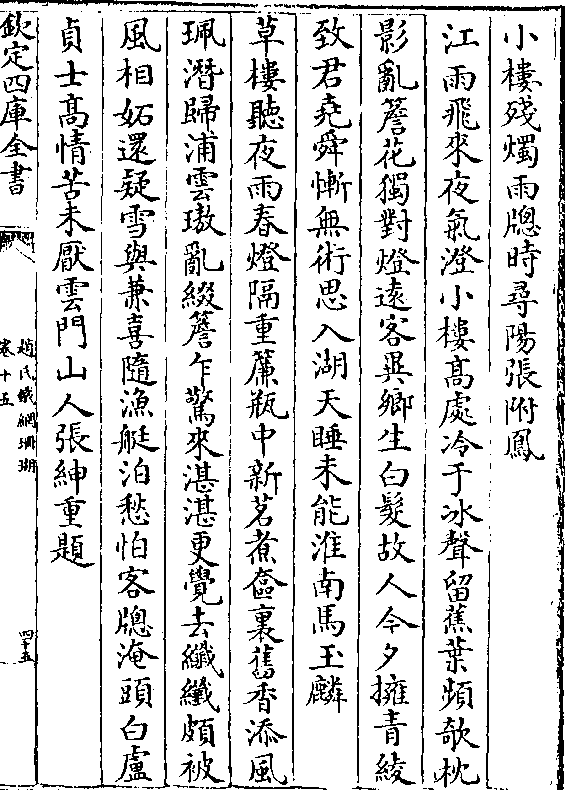 小樓殘燭雨牕時尋陽張附鳳
江雨飛來夜氣澄小樓髙處冷于冰聲留蕉葉頻欹枕
影亂簷花獨對燈遠客異鄉生白髮故人今夕擁青綾
致君堯舜慚無術思入湖天睡未能淮南馬玉麟
草樓聽夜雨春燈隔重簾瓶中新茗煮奩裏舊香添風
珮潛歸浦雲璈亂綴簷乍驚來湛湛更覺去纖纖頗被
風相妬還疑雪與兼喜隨漁艇泊愁怕客牕淹頭白盧
貞士髙情苦未厭雲門山人張紳重題
欽定四庫全書
趙氏鐵網珊瑚
卷十五
四十五